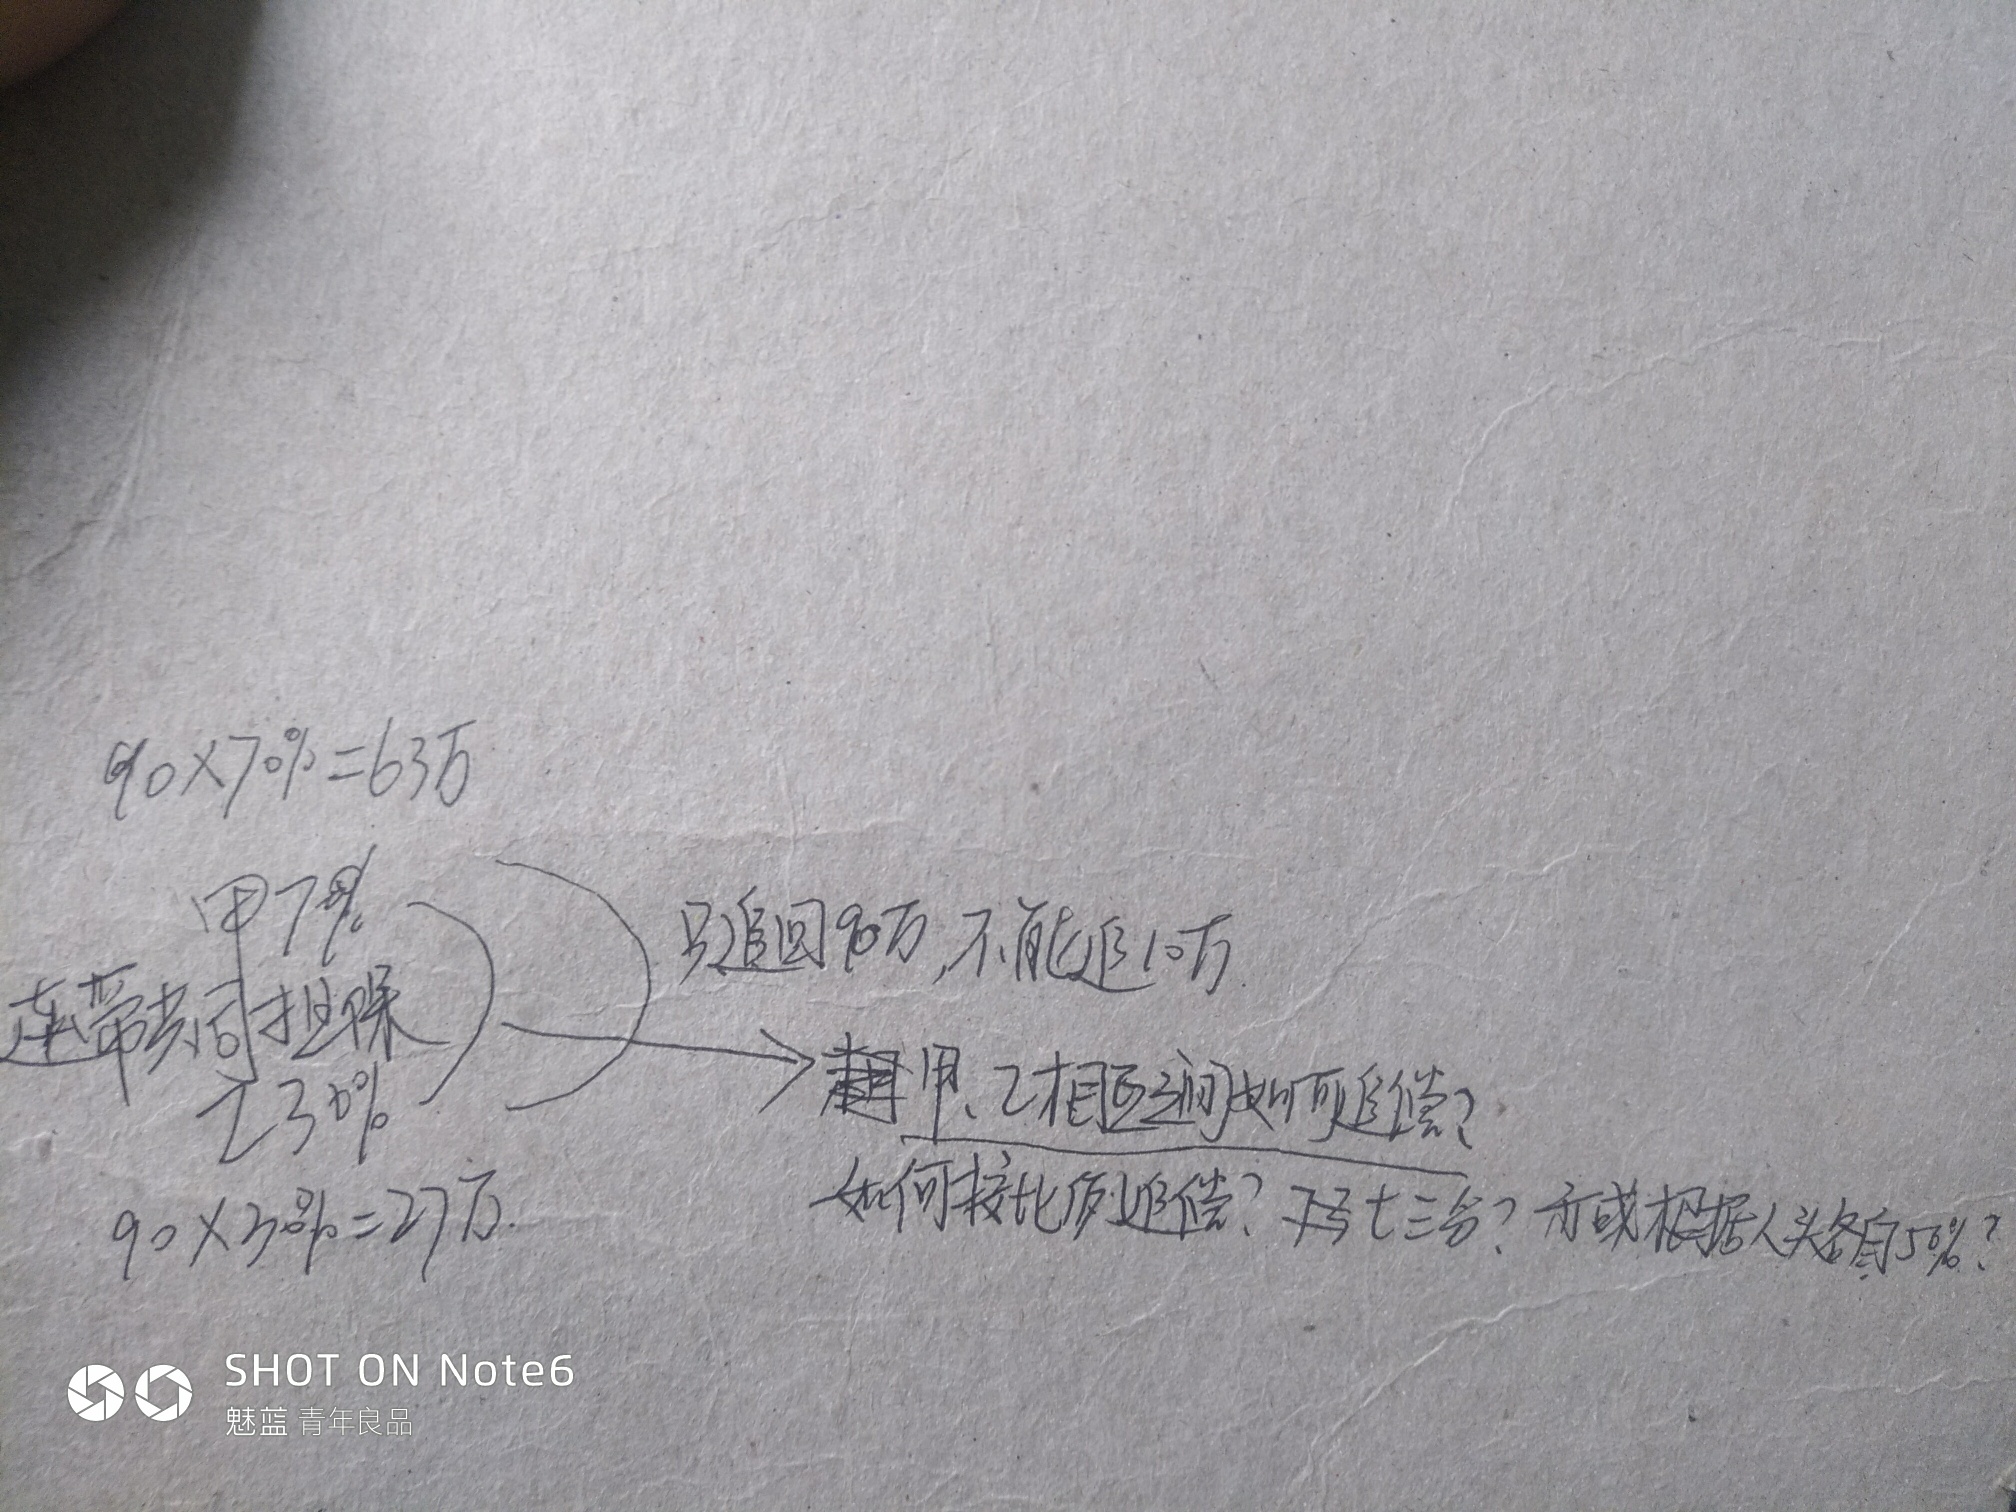 90×70%=63万
甲70%
连带共同担保
乙30%
90×30%=27万.
只追回90万,不能追10万
甲、乙相互之间如何追偿?
如何按比例追偿?
七三分?亦或根据人头各自50%?
SHOT ON Note6
魅蓝 青年良品